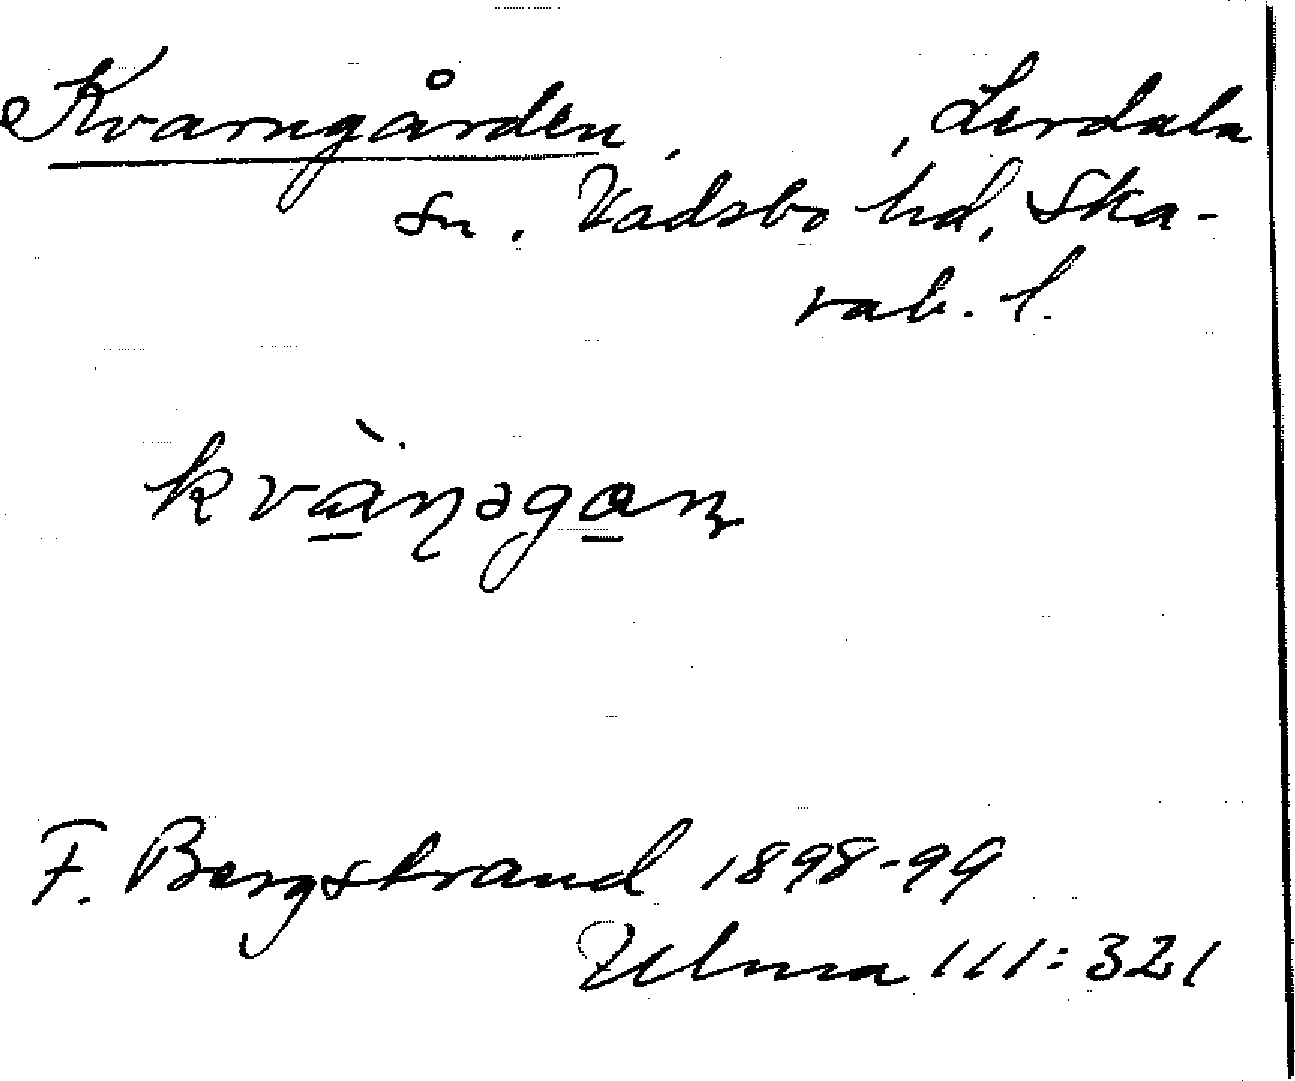 Kvarngården, , Lerdala
sn. Vadsbo hd, Ska-
rab. l.
kvàṇəgaɳ
F. Bergstrand 1898-99
Ulma 111:321